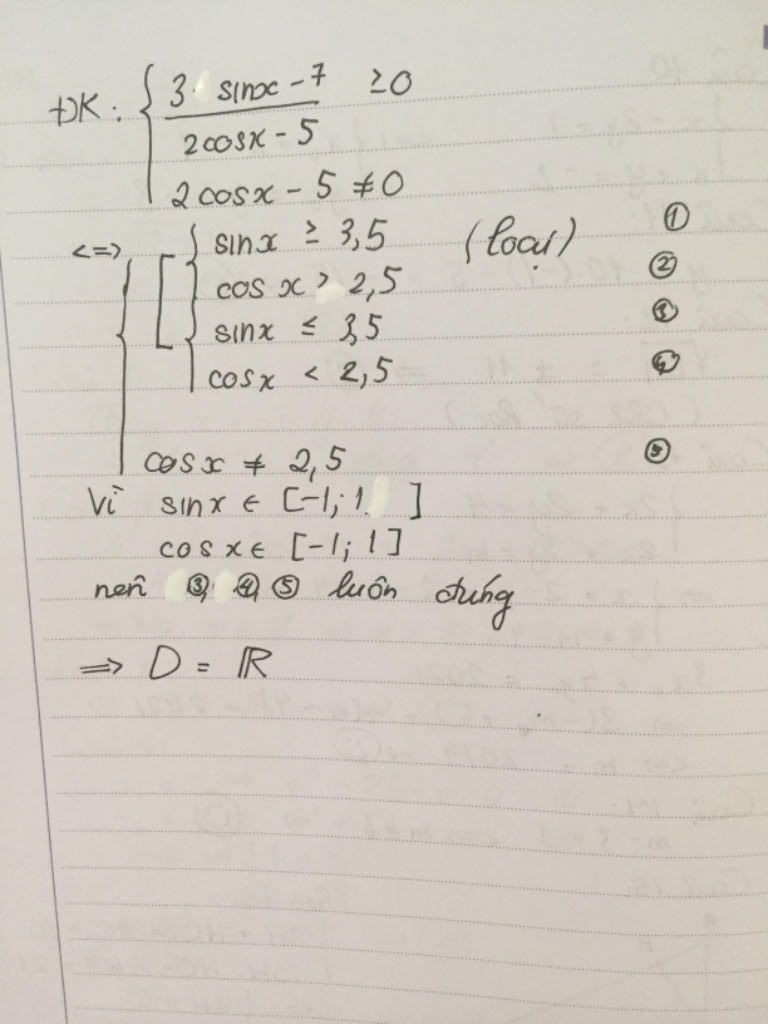 ĐK: { 3 sinx - 7 / 2cosx - 5 ≥ 0
2cosx - 5 ≠ 0
<=> { [ { sinx ≥ 3,5 (loại) ①
cosx > 2,5 ②
{ sinx ≤ 3,5 ③
cosx < 2,5 ④
cosx ≠ 2,5 ⑤
Vì sinx ∈ [-1; 1 ]
cosx ∈ [-1; 1]
nên ③, ④, ⑤ luôn đúng
=> D = ℝ